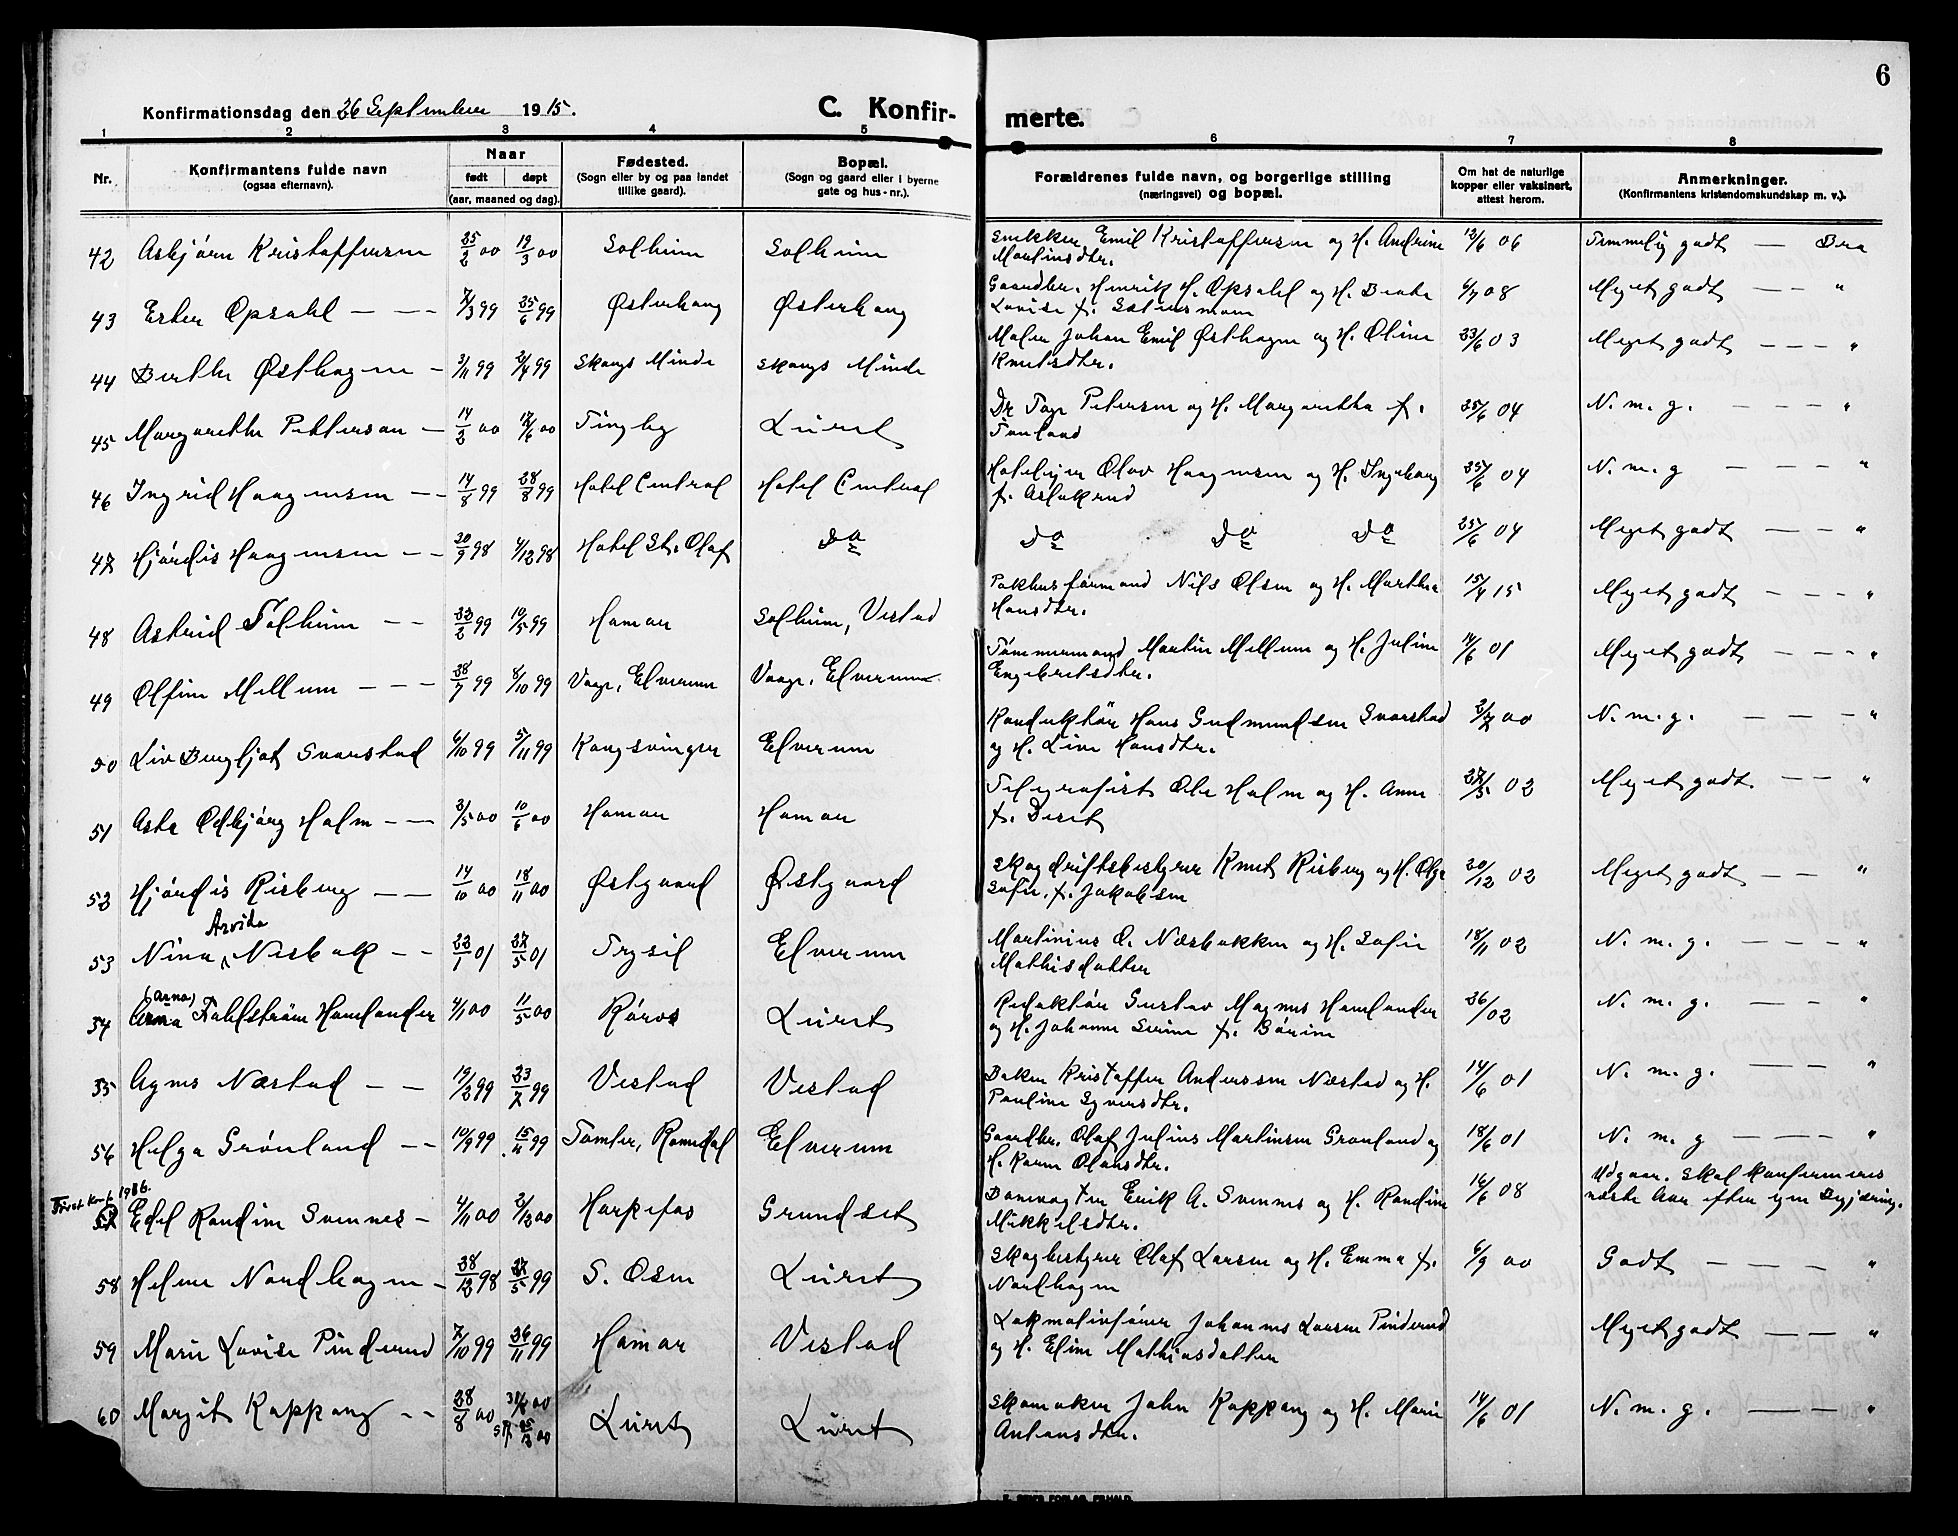 6
Konfirmationsdag den 26 September 1915.
C. Konfir-
merte.
1 2 3 4 5 6 7 8
Nr.
Konfirmantens fulde navn
(ogsaa efternavn).
Naar
født døpt
(aar, maaned og dag).
Fødested.
(Sogn eller by og paa landet
tillike gaard).
Bopæl.
(Sogn og gaard eller i byerne
gate og hus-nr.).
Forældrenes fulde navn, og borgerlige stilling
(næringsvei) og bopæl.
Om hat de naturlige
kopper eller vaksinert,
attest herom.
Anmerkninger.
(Konfirmantens kristendomskundskap m. v.).
42 Asbjörn Kristoffersen 25/2 00 19/3 00 Solheim Solheim Snekker Emil Kristoffersen og H. Andrine 12/6 06 Temmelig godt — Bra
Martinsdtr.
43 Ester Opsahl — — — 7/3 99 25/6 99 Østerhaug Østerhaug Gaardbr. Henrik H. Opsahl og H. Beate 6/7 08 Meget godt — — "
Lovise f.
44 Berthe Østhagen — 3/11 99 2/4 99 Skougs Minde Skougs Minde Maler Johan Emil Østhagen og H. Oline 23/6 03 Meget godt — — — "
Knutsdtr.
45 Margarethe Pettersen — 14/2 00 17/6 00 Tingby Luret Dr Tage Petersen og H. Margaretha f. 25/6 04 N. m. g. — — — "
46 Ingrid Haagensen — — 14/8 99 28/8 99 Hotel Central Hotel Central Hoteleier Olav Haagensen og H. Ingeborg 25/6 04 N. m. g — — — "
f. Aslakrud
47 Hjördis Haagensen — — 20/9 98 4/12 98 Hotel St. Olaf Do Do Do Do 25/6 04 Meget godt — — "
48 Astrid Solheim — — 22/2 99 10/5 99 Hamar Solheim, Vestad Pakhusformand Nils Olsen og H. Marthea 15/4 15 Meget godt — — — "
Hansdtr.
49 Olfine Mellum — — — 28/7 99 8/10 99 Vaage, Elverum Vaage, Elverum Tömmermand Martin Mellum og H. Juline 14/6 01 Meget godt — — — "
Engebretsdtr.
50 Liv Bergljot Svarstad 6/10 99 5/11 99 Kongsvinger Elverum Konduktör Hans Gudmundsen Svarstad 2/7 00 N. m. g. — — — "
og H. Live Hansdtr.
51 Aste Odbjörg Holm — — 3/5 00 10/6 00 Hamar Hamar Telegrafist Ole Holm og H. Anne 27/5 02 Meget godt. — — "
52 Hjördis Risberg — — 14/10 00 18/11 00 Østgaard Østgaard Skogdriftsbestyrer Knut Risberg og H. Olga 20/12 02 Meget godt — — "
Sofie f. Jakobsen
Arvida
53 Nina ^ Nesbak — — 22/1 01 27/5 01 Trysil Elverum Martinius O. Næsbakken og H. Sofie 18/11 02 N. m. g. — — — "
Mathisdatter
(Arna)
54 Arna Dahlström Hamlander 4/1 00 11/5 00 Röros Luret Redaktör Gustav Magnus Hamlander 26/ 02 N. m. g. — — "
og H. Johanne Serine f. Börine
55 Agnes Næstad — — 19/2 99 23/7 99 Vestad Vestad Baker Kristoffer Anderssen Næstad og H. 14/6 01 N. m. g. — — — "
Pauline Syversdtr.
56 Helga Grönland — — 10/9 99 15/11 99 Tomter, Romedal Elverum Gaardbr. Olaf Julius Martinsen Grönland og 18/6 01 N. m. g — — — "
H. Karen Olausdtr.
Först konf. 1916.
57 Edel Randine Svennes — 4/11 00 2/12 00 Harpefos Grundset Banevogter Erik A. Svennes og H. Randine 16/6 08 Udgaar. Skal konfirmeres
Mikkelsdtr. næste Aar efter egen Begjæring.
58 Helene Nordhagen — 28/12 98 27/5 99 S. Osen Luret Skogbestyrer Olaf Larsen og H. Emma f. 6/9 00 Godt — — — "
Nordhagen
59 Marie Lovise Pinderud 7/10 99 26/11 99 Hamar Vestad Lokomotivförer Johannes Larsen Pinderud Meget godt — — "
og H. Eline Mathiasdatter
60 Margit Koppang — — 28/8 00 Luret Luret Skomaker John Koppang og H. Marie 14/6 01 N. m. g. — — "
Antonsdtr.